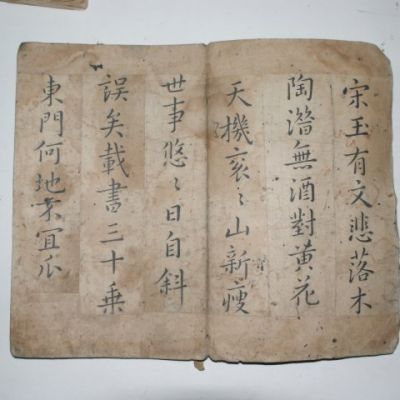 宋王有文悲落木
陶潛無酒對黃花
天機衮〻山新瘦
世事悠〻日自斜
誤矣載書三十乘
東門何地不宜瓜